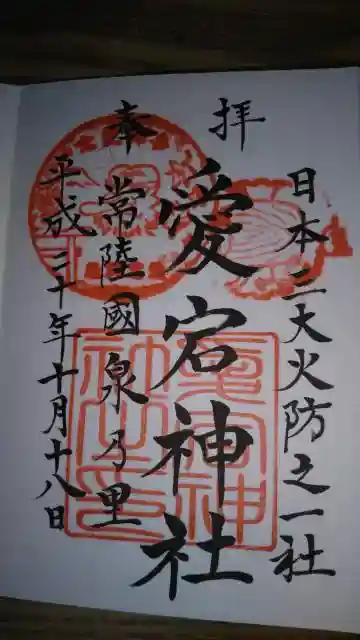 奉拝
日本二大火防之一社
愛宕神社
常陸國泉乃里
平成三十年十月十八日